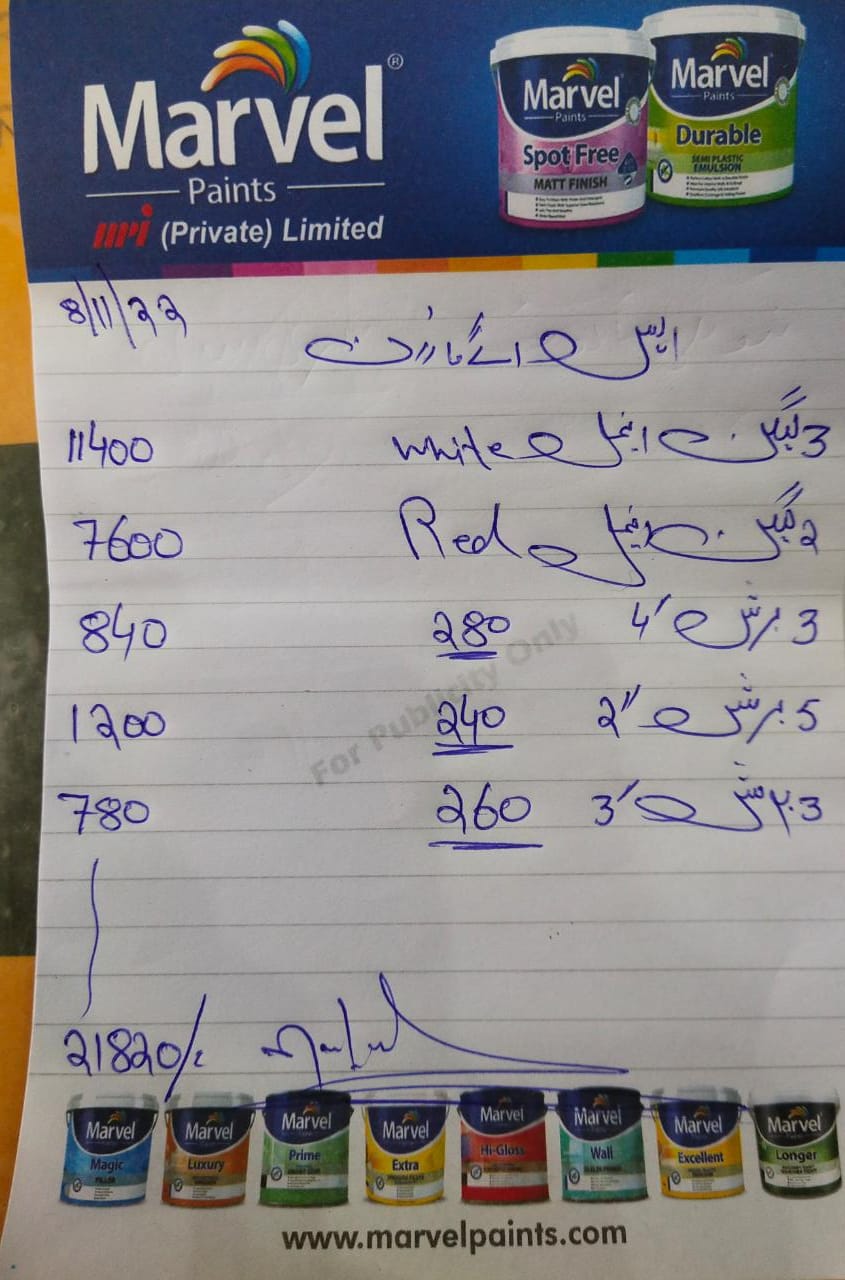 Marvel®
Paints
mpi (Private) Limited
Marvel
Paints
Spot Free
MATT FINISH
Marvel
Paints
Durable
SEMI PLASTIC
EMULSION
8/11/22
ایس اے گارڈن
3 گیلن انیمل White 11400
2 گیلن انیمل Red 7600
3 برش 4' 280 840
5 برش 2" 240 1200
3 برش 3' 260 780
For Publicity Only
21820/=
Marvel
Magic
FILLER
Marvel
Luxury
Marvel
Prime
Marvel
Extra
Marvel
Hi-Gloss
Marvel
Wall
Marvel
Excellent
Marvel
Longer
www.marvelpaints.com